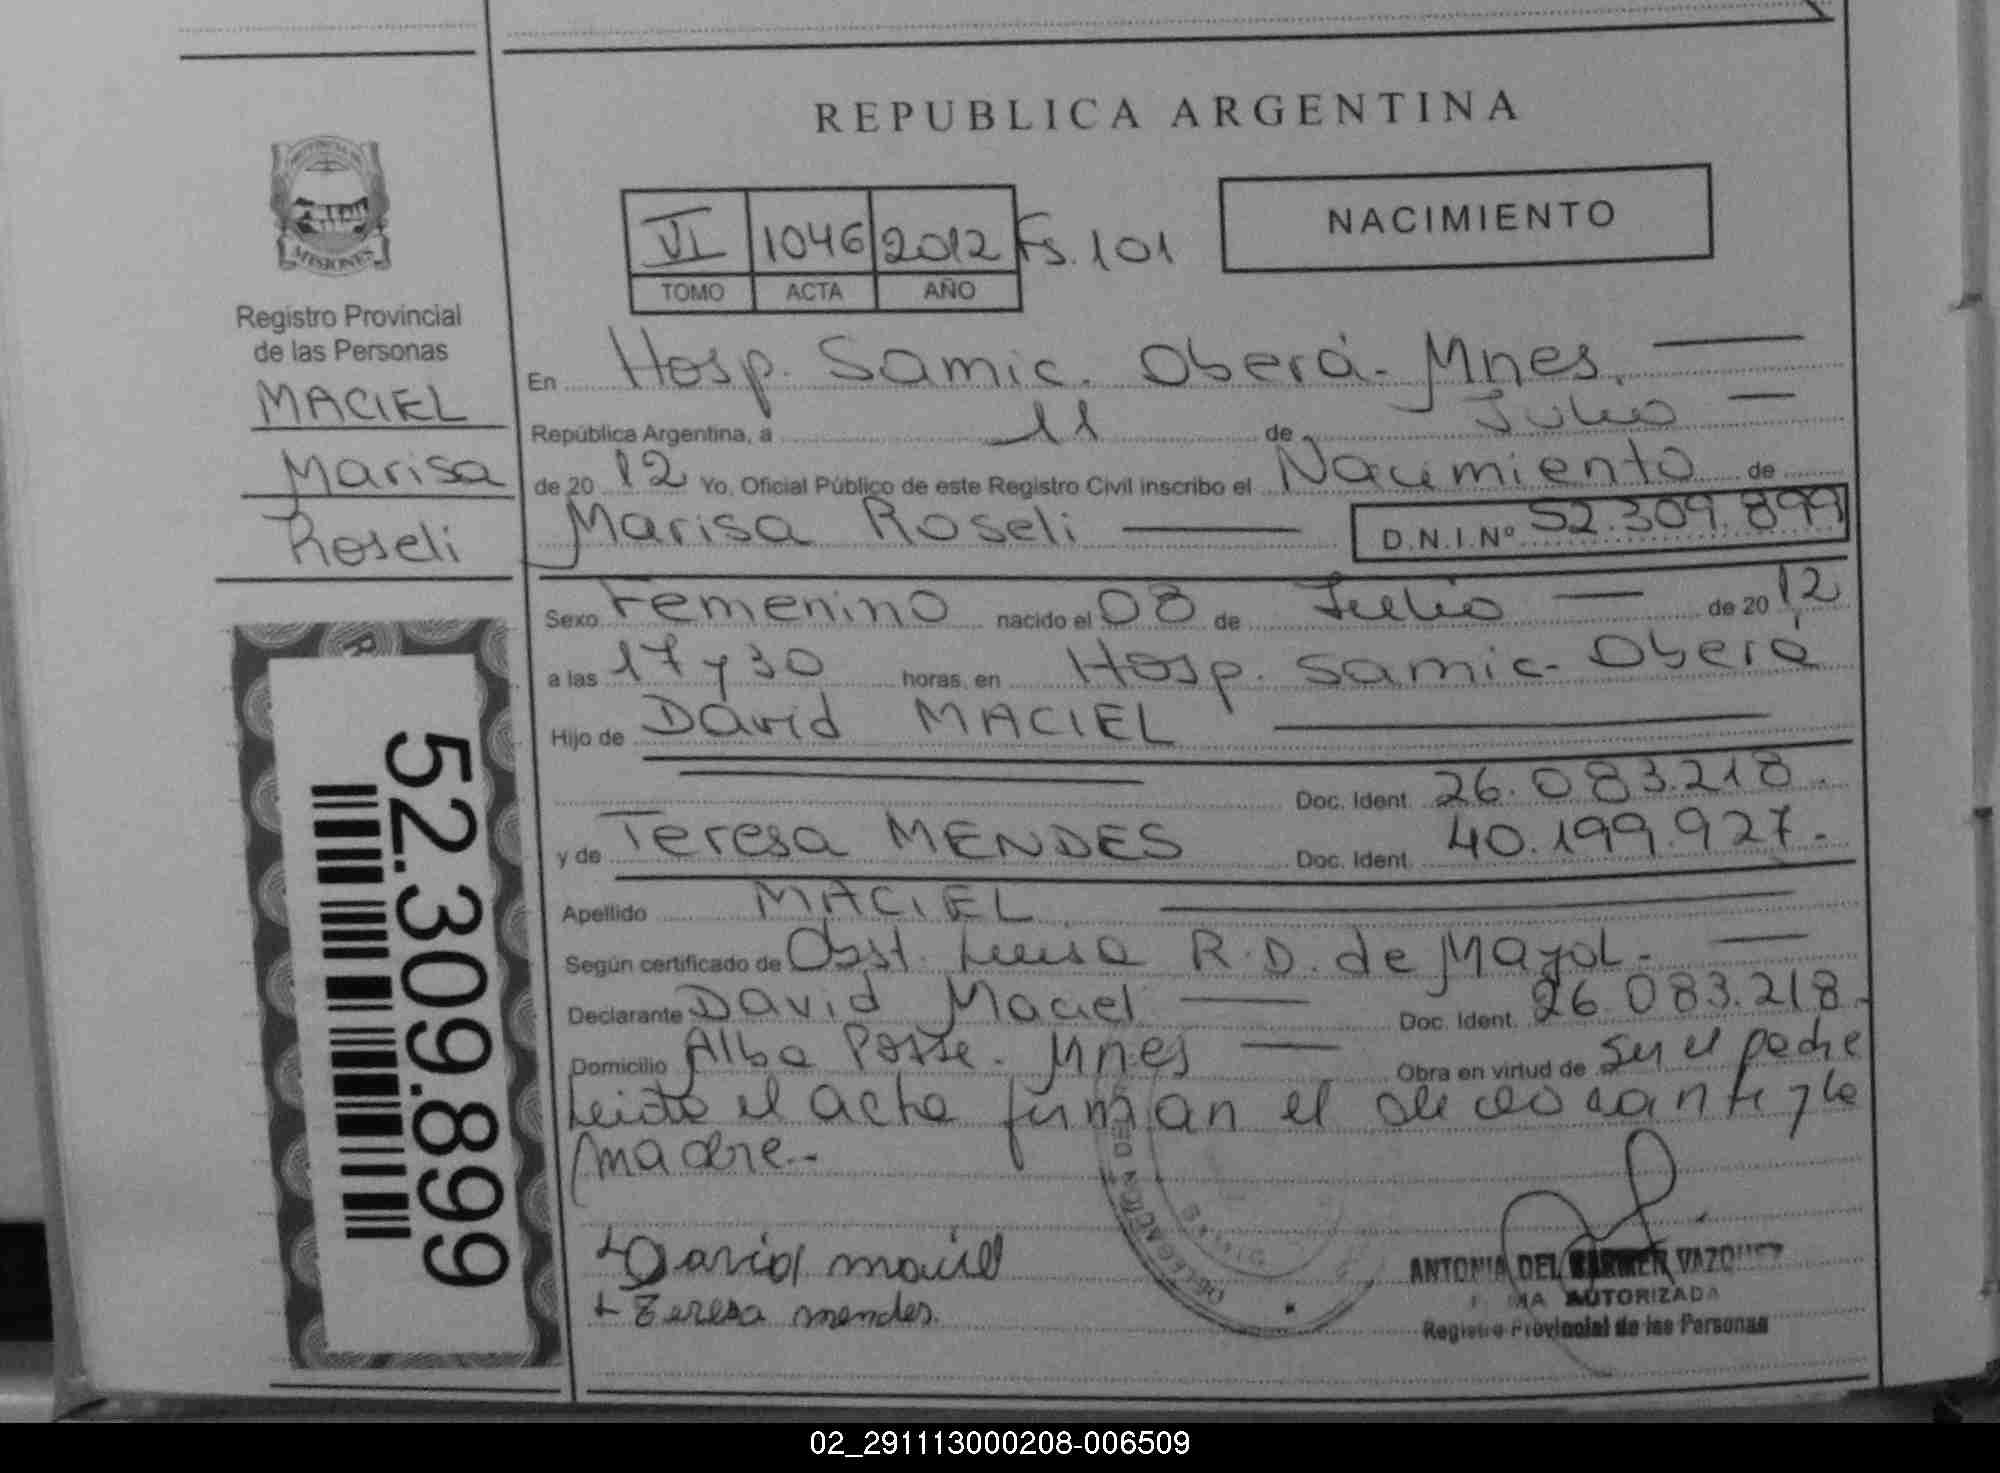 REPUBLICA ARGENTINA
PROVINCIA DE
MISIONES
Registro Provincial
de las Personas
MACIEL
Marisa
Roseli
52.309.899
VI 1046 2012 Fs. 101
TOMO ACTA AÑO
NACIMIENTO
En Hosp. Samic. Oberá. Mnes.
República Argentina, a 11 de Julio
de 2012 Yo, Oficial Público de este Registro Civil inscribo el Nacimiento de
Marisa Roseli D.N.I.Nº 52.309.899
Sexo Femenino nacido el 08 de Julio de 2012
a las 17 y 30 horas, en Hosp. Samic. Oberá
Hijo de David MACIEL
Doc. Ident. 26.083.218.
y de Teresa MENDES Doc. Ident. 40.199.927.
Apellido MACIEL
Según certificado de Obst. Luisa R.D. de Mayol.
Declarante David Maciel Doc. Ident. 26.083.218.
Domicilio Alba Posse. Mnes Obra en virtud de ser el padre
Leida el acta firman el declarante y la
madre.-
David maciel
Teresa mendes.
ANTONIA DEL CARMEN VAZQUEZ
AUTORIZADA
Registro Provincial de las Personas
02_291113000208-006509